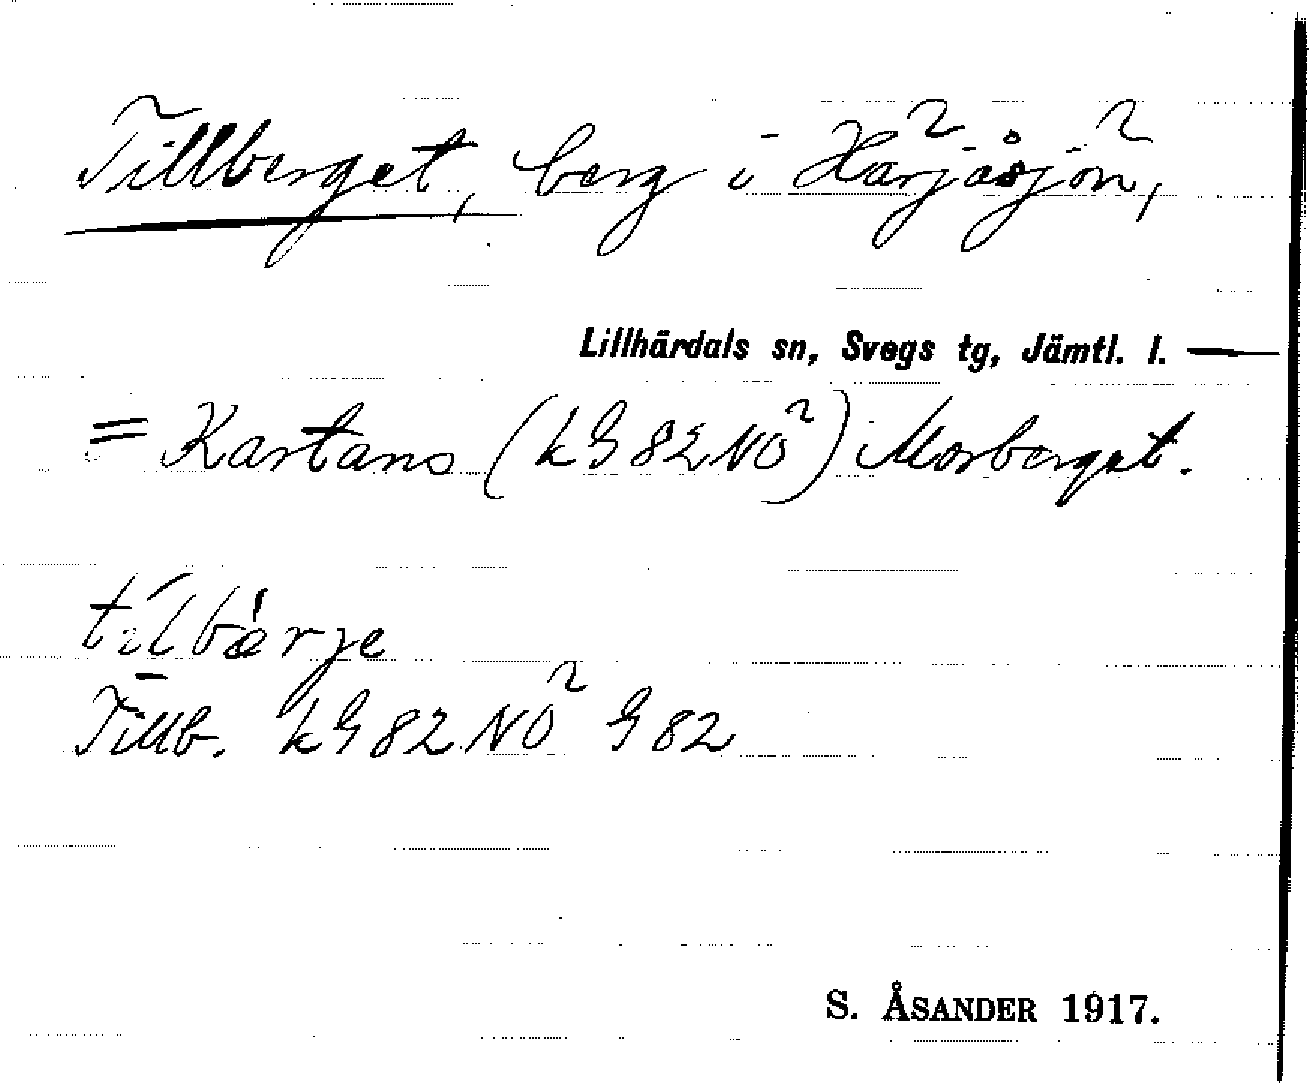 Tillberget, berg i Härjåsjön,
Lillhärdals sn, Svegs tg, Jämtl. l.
= Kartans (kG 82 NÖ) Morberget.
tilbärje
Tillb. kG 82 NÖ G 82
S. ÅSANDER 1917.